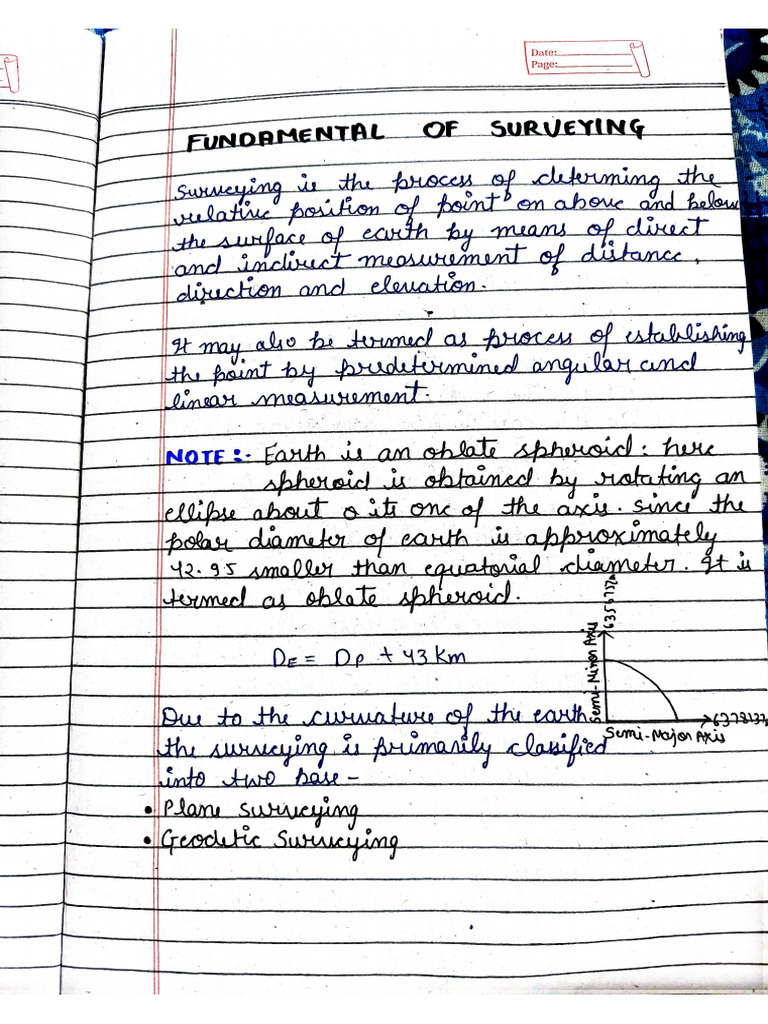 Date:
Page:
FUNDAMENTAL OF SURVEYING
Surveying is the process of determing the
relative position of point on above and below
the surface of earth by means of direct
and indirect measurement of distance,
direction and elevation.
It may also be termed as process of establishing
the point by predetermined angular and
linear measurement.
NOTE :- Earth is an oblate spheroid: here
spheroid is obtained by rotating an
ellipse about o its one of the axis. Since the
polar diameter of earth is approximately
42.95 smaller than equatorial diameter. It is
termed as oblate spheroid.
DE = DP + 43 Km
Semi-Minor Axis
Semi-Major Axis
Due to the curvature of the earth
the surveying is primarily classified
into two base -
• Plane surveying
• Geodetic Surveying